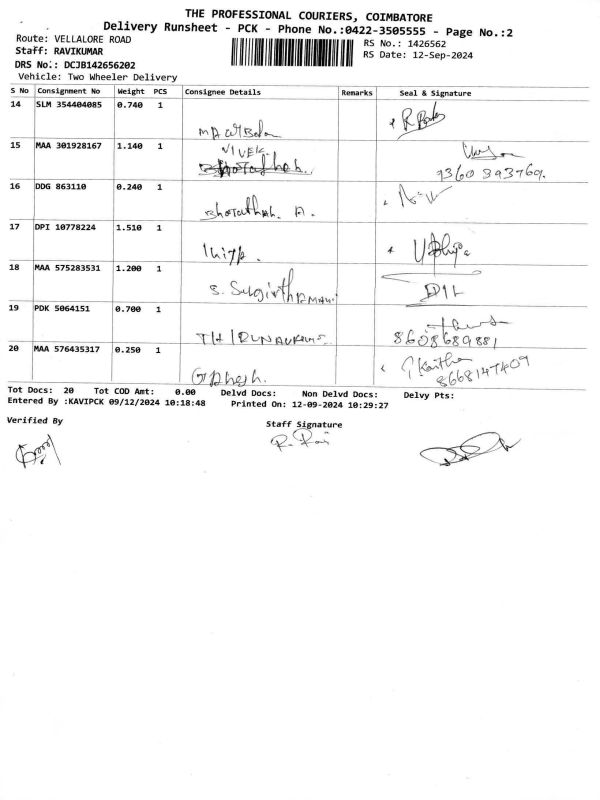 THE PROFESSIONAL COURIERS, COIMBATORE
Delivery Runsheet - PCK - Phone No.:0422-3505555 - Page No.:2
Route: VELLALORE ROAD
RS No.: 1426562
Staff: RAVIKUMAR
RS Date: 12-Sep-2024
DRS No.: DCJB142656202
Vehicle: Two Wheeler Delivery
S No Consignment No Weight PCS Consignee Details Remarks Seal & Signature
14 SLM 354404085 0.740 1
15 MAA 301928167 1.140 1 VIVEK.
9360393769.
16 DDG 863110 0.240 1
17 DPI 10778224 1.510 1
18 MAA 575283531 1.200 1
19 PDK 5064151 0.700 1
8608689881
20 MAA 576435317 0.250 1 Ganesh.
8668147409
Tot Docs: 20 Tot COD Amt: 0.00 Delvd Docs: Non Delvd Docs: Delvy Pts:
Entered By :KAVIPCK 09/12/2024 10:18:48 Printed On: 12-09-2024 10:29:27
Verified By Staff Signature